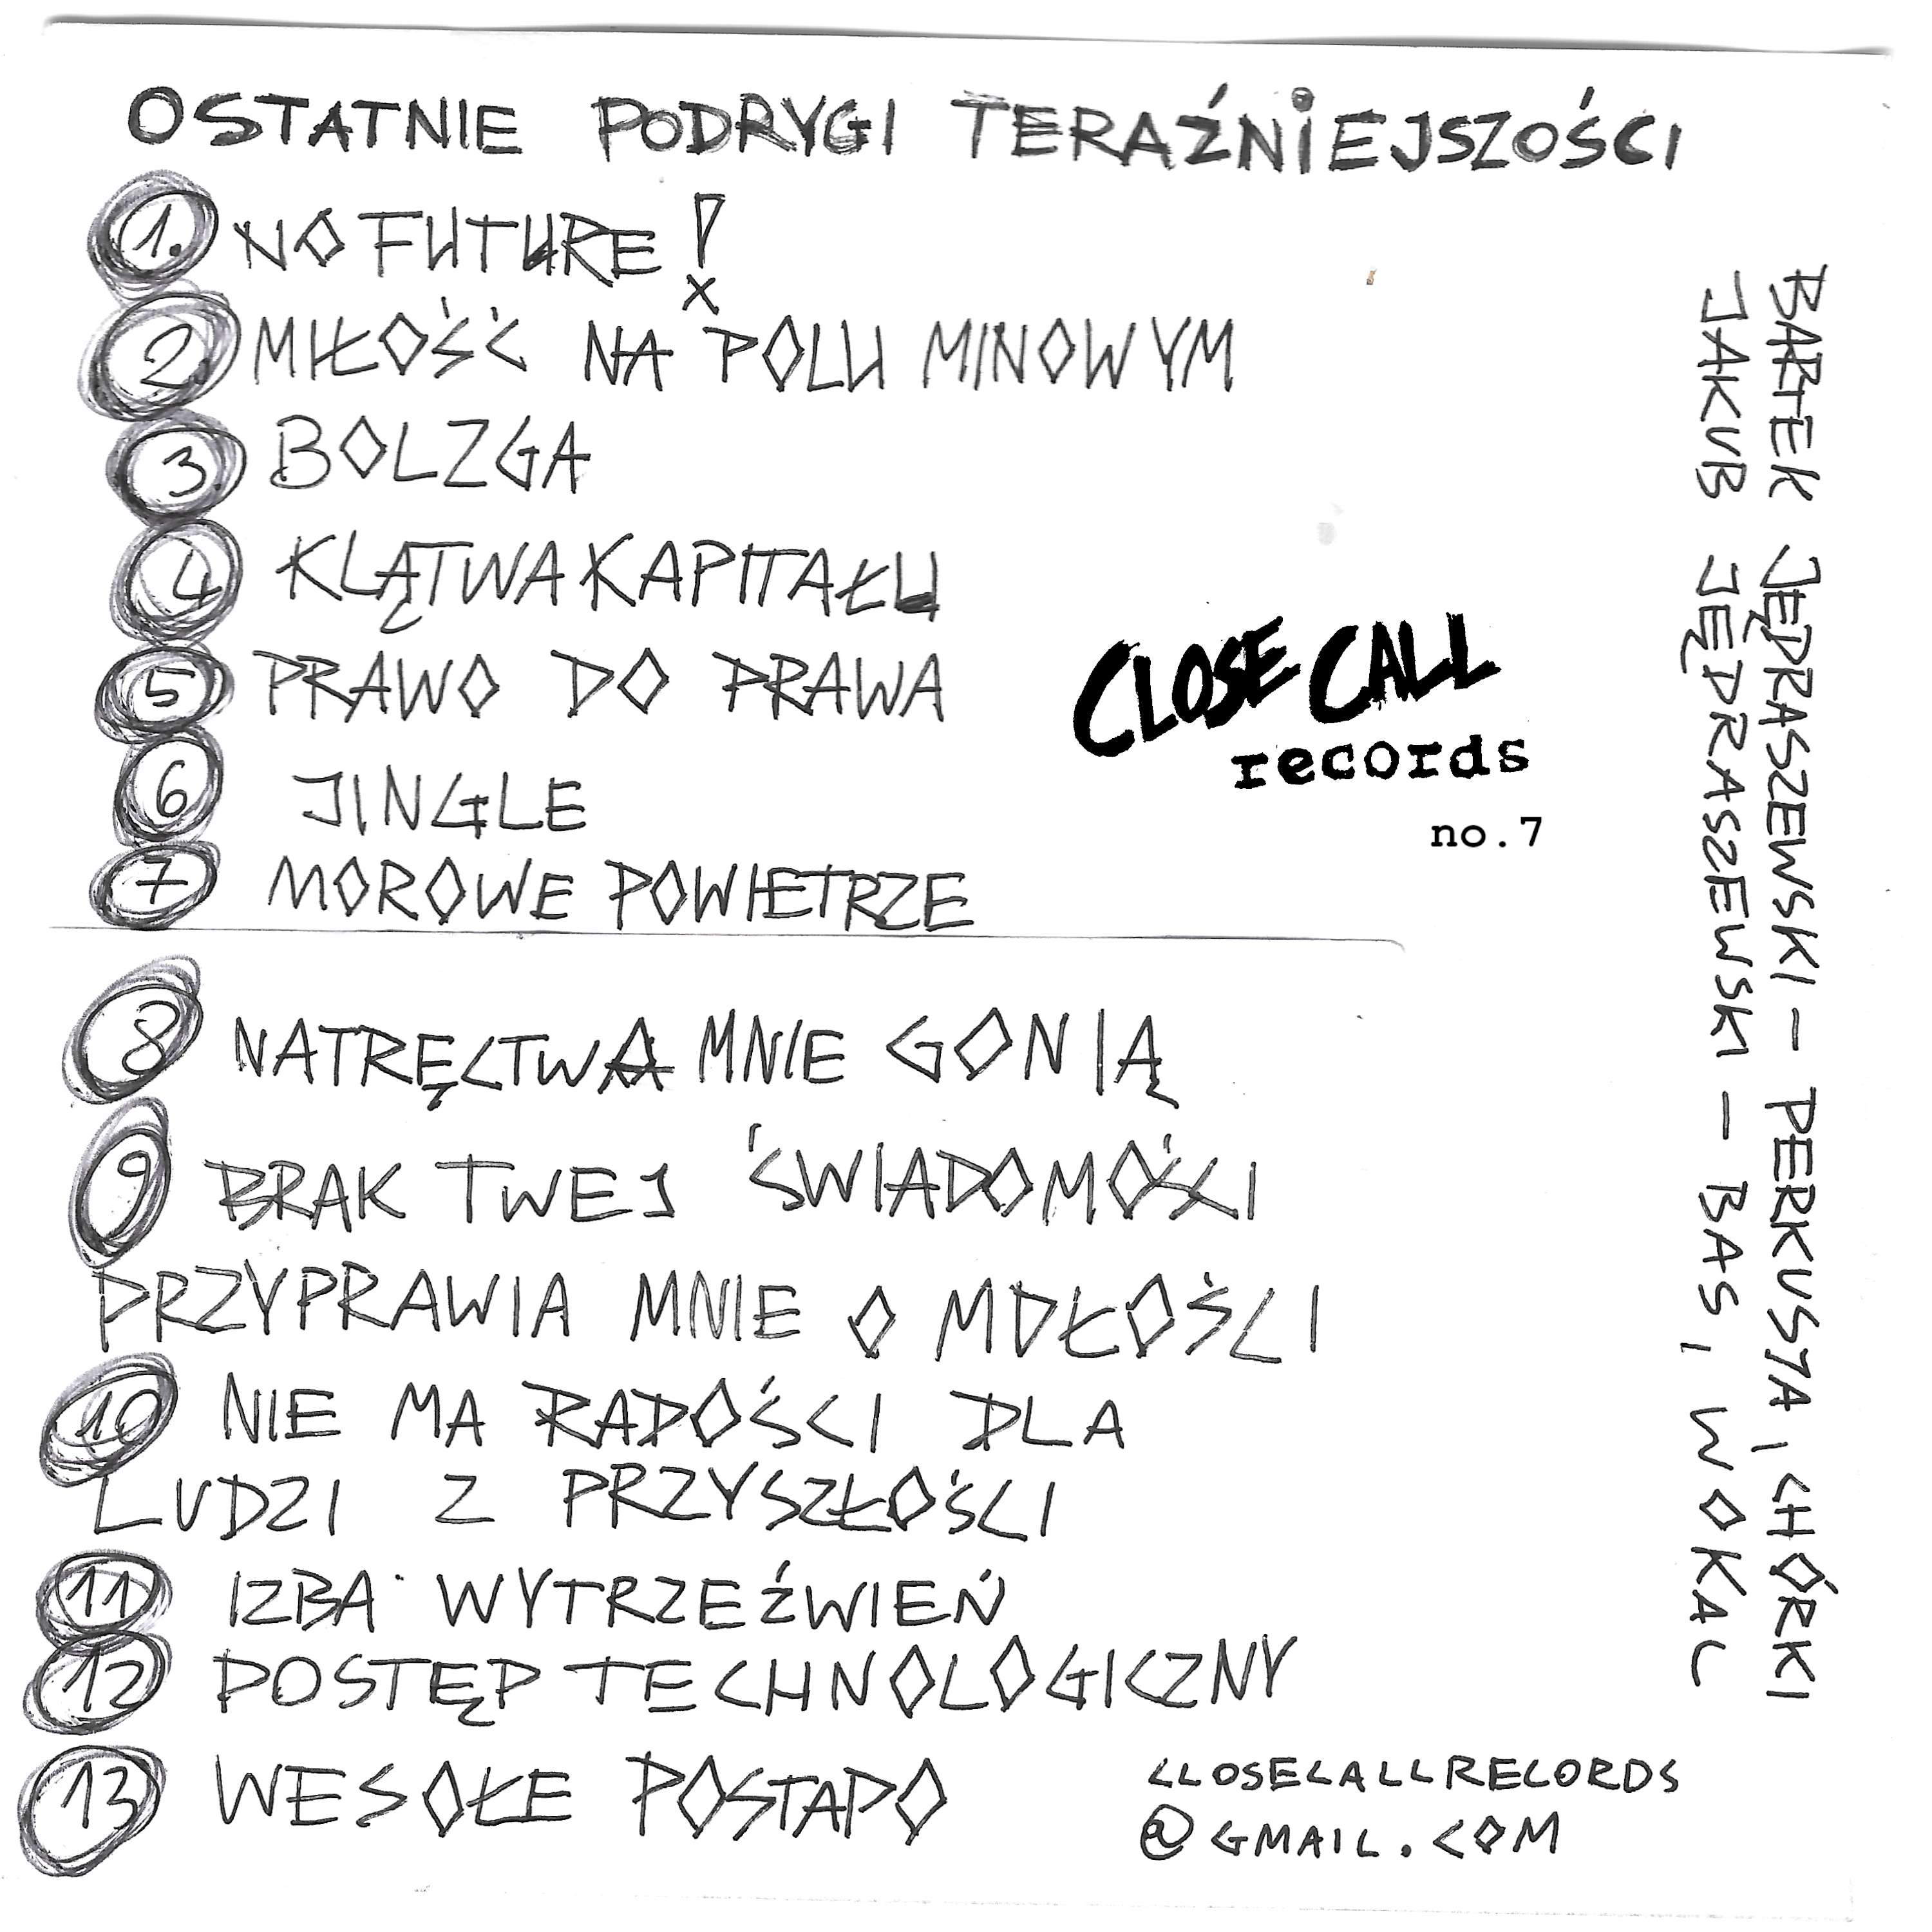 OSTATNIE PODRYGI TERAŹNIEJSZOŚCI
1. NO FUTURE!
2. MIŁOŚĆ NA POLU MINOWYM
3. BOLZGA
4 KLĄTWA KAPITAŁU
5 PRAWO DO PRAWA
6 JINGLE
7 MOROWE POWIETRZE
CLOSE CALL
records
no.7
8 NATRĘCTWA MNIE GONIĄ
9 BRAK TWEJ ŚWIADOMOŚCI
PRZYPRAWIA MNIE O MDŁOŚCI
10 NIE MA RADOŚCI DLA
LUDZI Z PRZYSZŁOŚCI
11 IZBA WYTRZEŹWIEŃ
12 POSTĘP TECHNOLOGICZNY
13 WESOŁE POSTAPO
CLOSECALLRECORDS
@GMAIL.COM
BARTEK JĘDRASZEWSKI – PERKUSJA I CHÓRKI
JAKUB JĘDRASZEWSKI – BAS I WOKAL